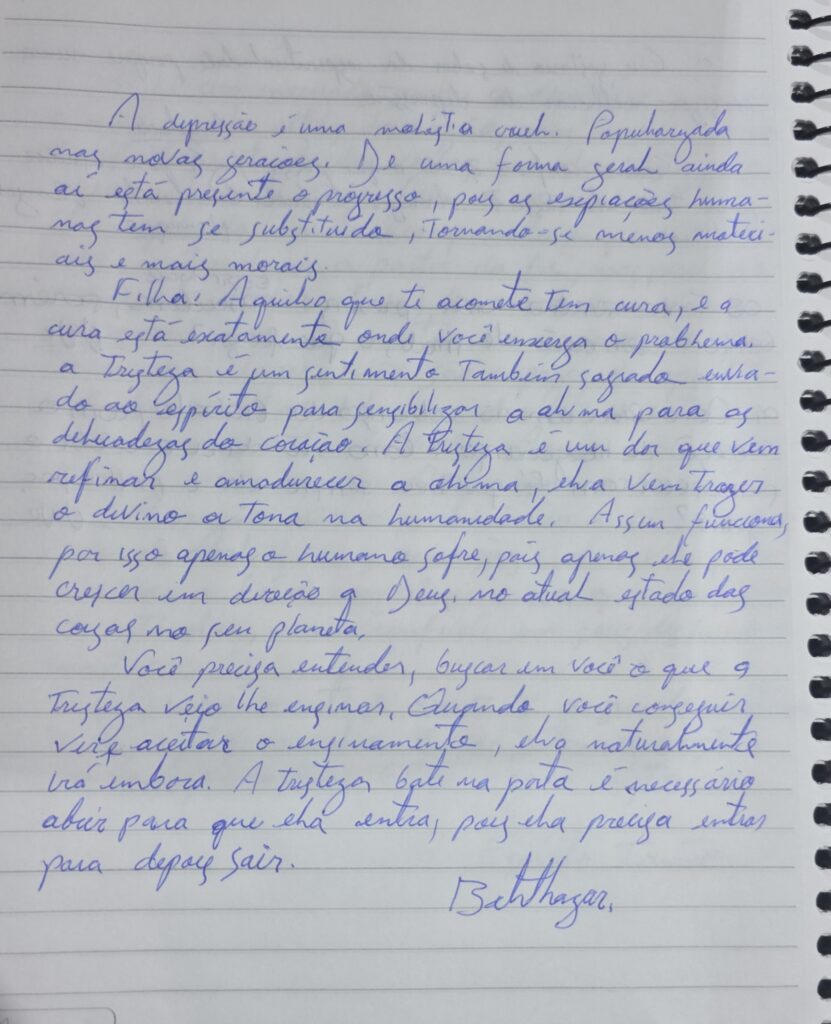 A depressão é uma moléstia cruel. Popularizada
nas novas gerações. De uma forma geral ainda
aí está presente o progresso, pois as expiações huma-
nas tem se substituído, tornando-se menos materi-
ais e mais morais.
Filha: Aquilo que te acomete tem cura, e a
cura está exatamente onde você enxerga o problema.
a Tristeza é um sentimento também sagrado envia-
do ao espírito para sensibilizar a alma para as
delicadezas do coração. A tristeza é um dor que vem
refinar e amadurecer a alma, ela vem trazer
o divino a tona na humanidade. Assim funciona,
por isso apenas o humano sofre, pois apenas ele pode
crescer em direção a Deus, no atual estado das
coisas no seu planeta.
Você precisa entender, buscar em você o que a
Tristeza veio lhe ensinar. Quando você conseguir
ver e aceitar o ensinamento, ela naturalmente
irá embora. A tristeza bate na porta é necessário
abrir para que ela entra, pois ela precisa entrar
para depois sair.
Balthazar.